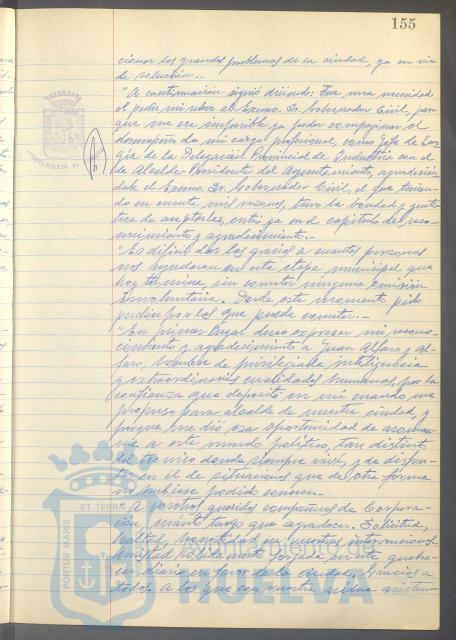 155
cionar los grandes problemas de la ciudad, ya en vía
de solución.-
"A continuación siguió diciendo: Fue una necesidad
el pedir mi relevo al Excmo. Sr. Gobernador Civil, por
que me era imposible ya poder compaginar el
desempeño de mi cargo profesional, como Jefe de Ener
gía de la Delegación Provincial de Industria con el
de Alcalde-Presidente del Ayuntamiento, agradecien
dole al Excmo. Sr. Gobernador Civil, el que tenien
do en cuenta mis razones, tuvo la bondad y genti
leza de aceptarlas, entro ya en el capítulo del reco
nocimiento y agradecimiento.-
"Es difícil dar las gracias a cuantas personas
nos ayudaron en esta etapa municipal que
hoy termina, sin cometer ninguna omisión
involuntaria. Desde este momento pido
perdón por las que pueda cometer.-
"En primer lugar deseo expresar mi recono
cimiento y agradecimiento a Juan Alfaro y Al
faro, hombre de privilegiada inteligencia
y extraordinarias cualidades humanas, por la
confianza que depositó en mi cuando me
propuso para alcalde de nuestra ciudad, y
porque me dió esa oportunidad de asomar
me a este mundo político, tan distinto
del técnico donde siempre viví, y de disfru
tar en él de situaciones que de otra forma
no hubiese podido conocer.-
"A vosotros queridos compañeros de Corpora
ción, cuánto tengo que agradecer. Solicitud,
lealtad, honestidad en vuestras intervenciones,
amistad sólidamente forjada en este queha
cer diario en favor de la ciudad. Gracias a
todos. A los que con vuestra asisten-
PORTUS MARIS ET TERRAE
Ayuntamiento de
HUELVA